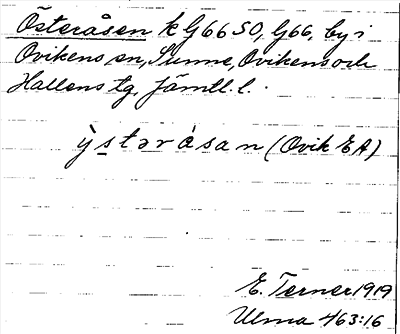 Österåsen k G66 SO, G66, by i
Ovikens sn, Sunne, Ovikens och
Hallens tg, Jämtl. l.
ỳstəråsan (Ovik EA)
E. Terner 1919
Ulma 463:16